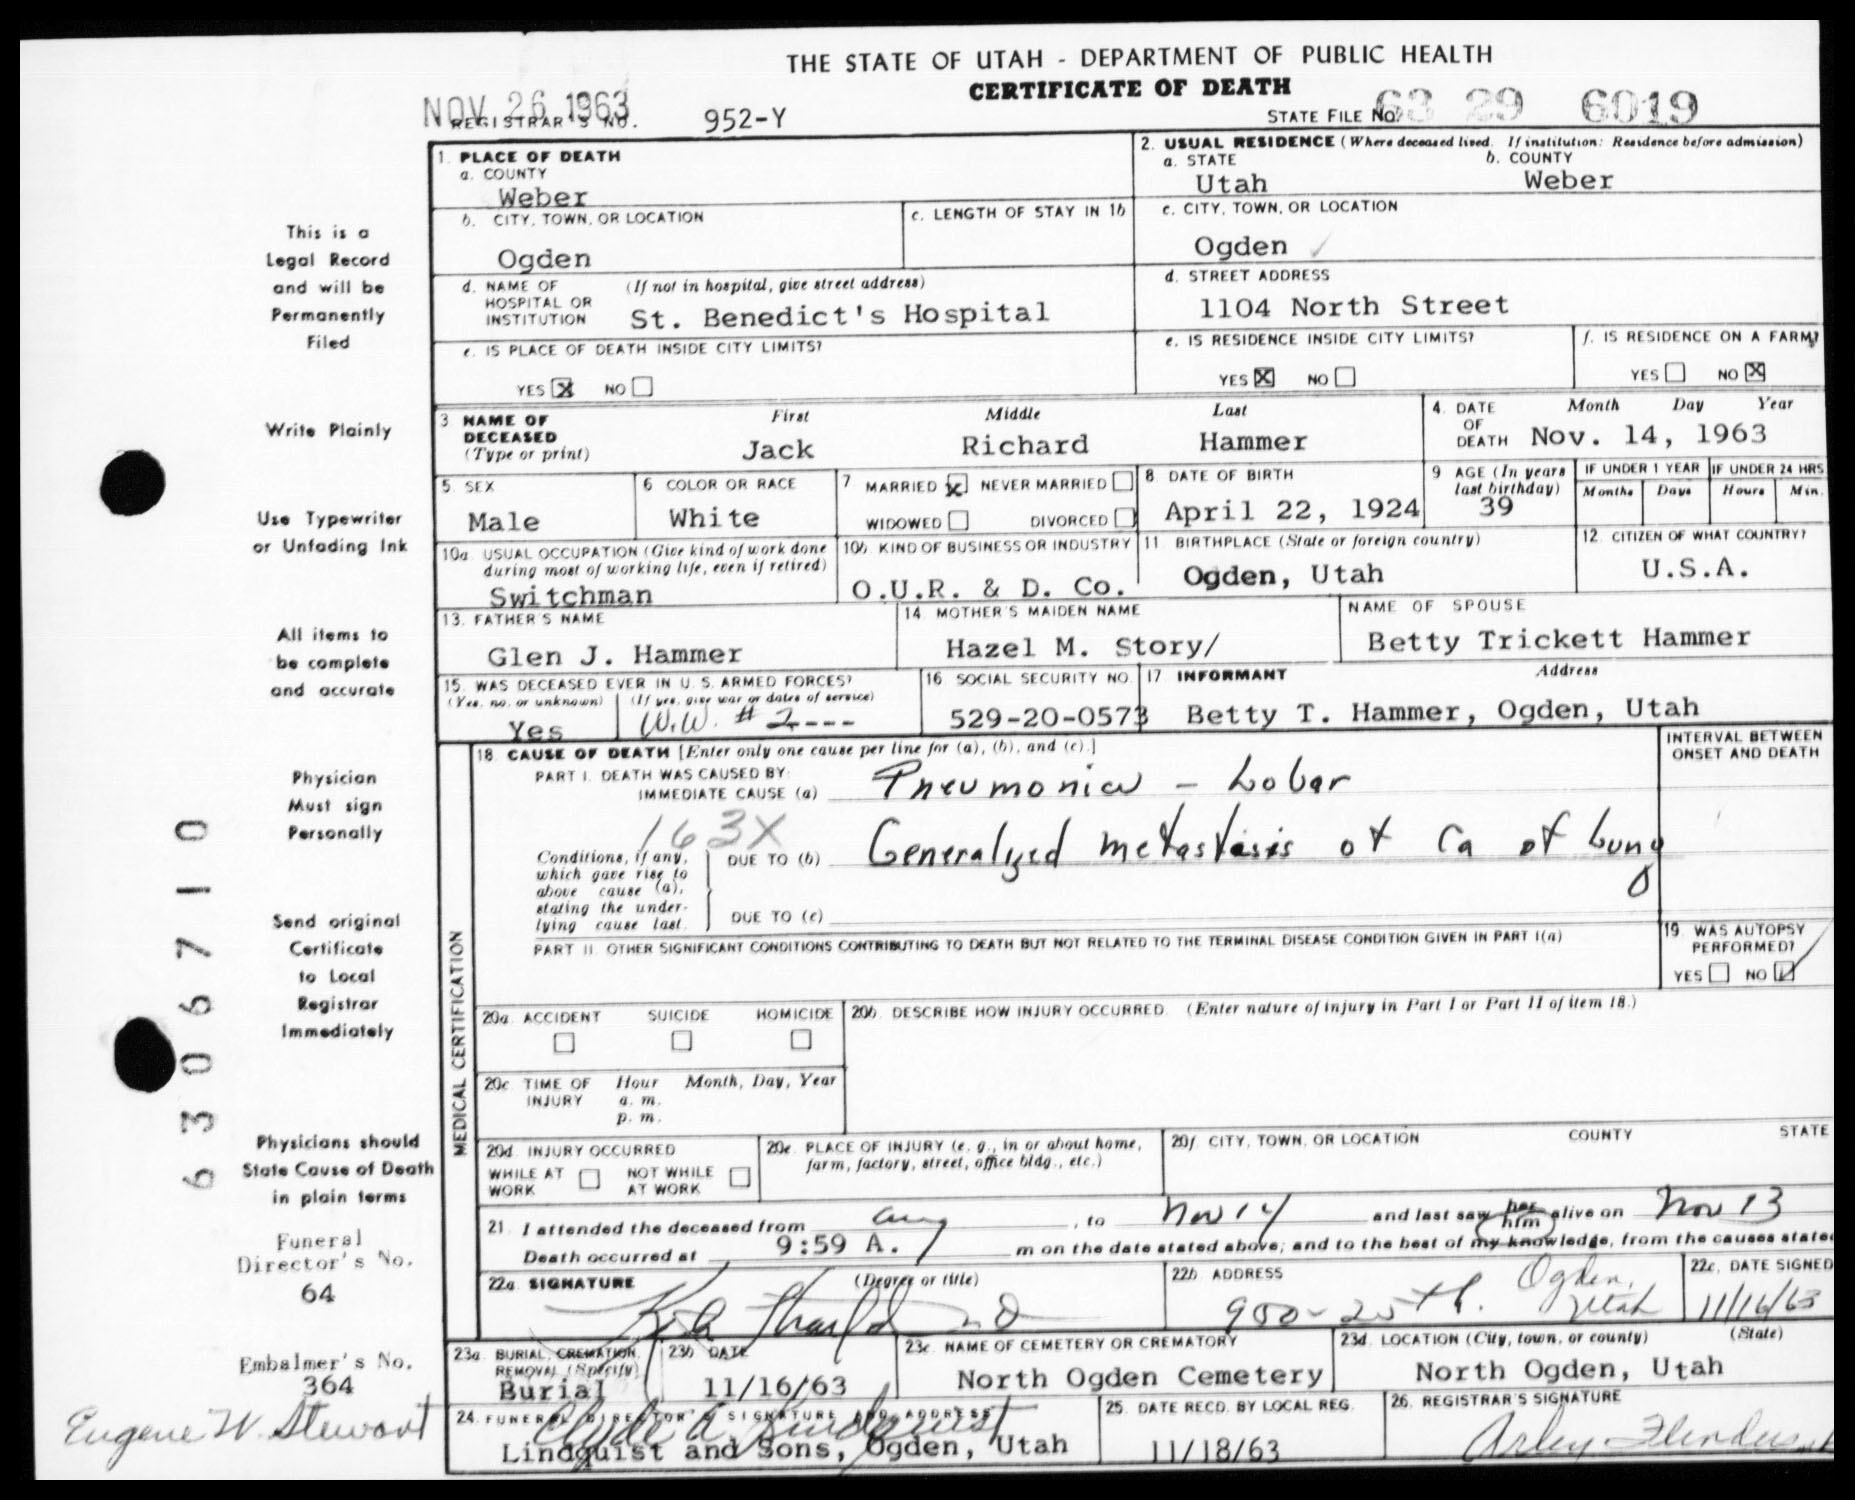 THE STATE OF UTAH - DEPARTMENT OF PUBLIC HEALTH
CERTIFICATE OF DEATH
NOV 26 1963
REGISTRAR'S NO. 952-Y
STATE FILE No. 63 29 6019
This is a
Legal Record
and will be
Permanently
Filed
Write Plainly
Use Typewriter
or Unfading Ink
All items to
be complete
and accurate
Physician
Must sign
Personally
Send original
Certificate
to Local
Registrar
Immediately
Physicians should
State Cause of Death
in plain terms
Funeral
Director's No.
64
Embalmer's No.
364
Eugene W. Stewart
6306710
1. PLACE OF DEATH
a. COUNTY
Weber
b. CITY, TOWN, OR LOCATION
Ogden
c. LENGTH OF STAY IN 1b
d. NAME OF HOSPITAL OR INSTITUTION (If not in hospital, give street address)
St. Benedict's Hospital
e. IS PLACE OF DEATH INSIDE CITY LIMITS?
YES X NO
2. USUAL RESIDENCE (Where deceased lived. If institution: Residence before admission)
a. STATE
Utah
b. COUNTY
Weber
c. CITY, TOWN, OR LOCATION
Ogden
d. STREET ADDRESS
1104 North Street
e. IS RESIDENCE INSIDE CITY LIMITS?
YES X NO
f. IS RESIDENCE ON A FARM?
YES NO X
3 NAME OF DECEASED (Type or print)
First Middle Last
Jack Richard Hammer
4. DATE OF DEATH
Month Day Year
Nov. 14, 1963
5. SEX
Male
6 COLOR OR RACE
White
7 MARRIED X NEVER MARRIED
WIDOWED DIVORCED
8 DATE OF BIRTH
April 22, 1924
9 AGE (In years last birthday)
39
IF UNDER 1 YEAR
Months Days
IF UNDER 24 HRS.
Hours Min.
10a. USUAL OCCUPATION (Give kind of work done during most of working life, even if retired)
Switchman
10b. KIND OF BUSINESS OR INDUSTRY
O.U.R. & D. Co.
11. BIRTHPLACE (State or foreign country)
Ogden, Utah
12. CITIZEN OF WHAT COUNTRY?
U.S.A.
13. FATHER'S NAME
Glen J. Hammer
14 MOTHER'S MAIDEN NAME
Hazel M. Story/
NAME OF SPOUSE
Betty Trickett Hammer
15. WAS DECEASED EVER IN U. S. ARMED FORCES?
(Yes, no, or unknown) (If yes, give war or dates of service)
Yes W.W. #2----
16 SOCIAL SECURITY NO.
529-20-0573
17 INFORMANT Address
Betty T. Hammer, Ogden, Utah
MEDICAL CERTIFICATION
18. CAUSE OF DEATH [Enter only one cause per line for (a), (b), and (c).]
INTERVAL BETWEEN ONSET AND DEATH
PART I. DEATH WAS CAUSED BY:
IMMEDIATE CAUSE (a) Pneumonia - Lobar
163X
Conditions, if any, which gave rise to above cause (a), stating the underlying cause last.
DUE TO (b) Generalyzed metastasis of Ca of Lung
DUE TO (c)
PART II. OTHER SIGNIFICANT CONDITIONS CONTRIBUTING TO DEATH BUT NOT RELATED TO THE TERMINAL DISEASE CONDITION GIVEN IN PART I(a)
19. WAS AUTOPSY PERFORMED?
YES NO ✓
20a. ACCIDENT SUICIDE HOMICIDE
20b. DESCRIBE HOW INJURY OCCURRED. (Enter nature of injury in Part I or Part II of item 18.)
20c. TIME OF INJURY Hour Month, Day, Year
a. m.
p. m.
20d. INJURY OCCURRED
WHILE AT WORK NOT WHILE AT WORK
20e. PLACE OF INJURY (e. g., in or about home, farm, factory, street, office bldg., etc.)
20f. CITY, TOWN, OR LOCATION COUNTY STATE
21. I attended the deceased from Aug, to Nov 14 and last saw her him alive on Nov 13
Death occurred at 9:59 A. m on the date stated above; and to the best of my knowledge, from the causes stated
22a. SIGNATURE (Degree or title)
22b. ADDRESS
950-25th. Ogden, Utah
22c. DATE SIGNED
11/16/63
23a. BURIAL, CREMATION, REMOVAL (Specify)
Burial
23b. DATE
11/16/63
23c. NAME OF CEMETERY OR CREMATORY
North Ogden Cemetery
23d. LOCATION (City, town, or county) (State)
North Ogden, Utah
24. FUNERAL DIRECTOR'S SIGNATURE AND ADDRESS
Clyde A Lindquist
Lindquist and Sons, Ogden, Utah
25. DATE RECD. BY LOCAL REG.
11/18/63
26. REGISTRAR'S SIGNATURE
Arley Flinders